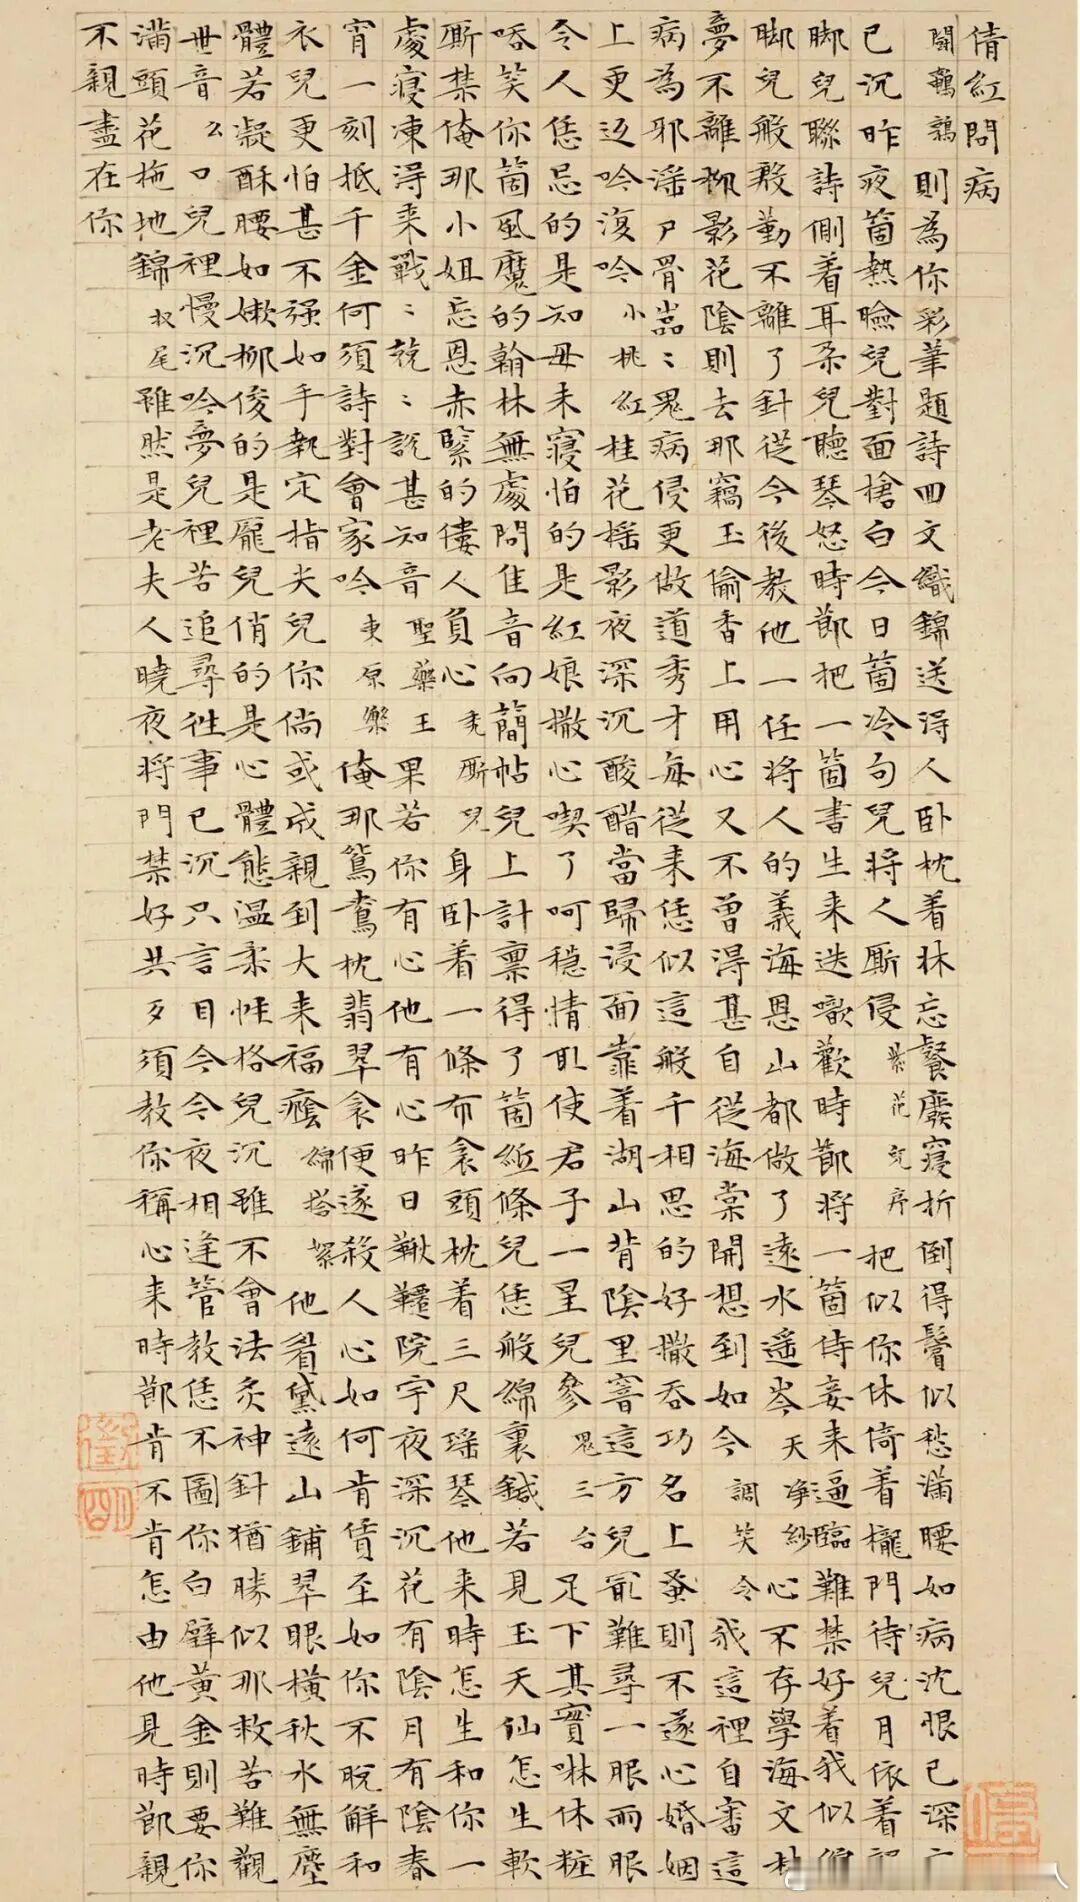 倩紅問病
鬪鵪鶉則為你彩筆題詩回文織錦送得人臥枕着床忘餐廢寢折倒得鬢似愁潘腰如病沈恨已深
已沉昨夜箇熱臉兒對面搶白今日箇冷句兒將人廝侵紫花兒序把似你休倚着櫳門待兒月依着
脚兒聯詩側着耳朵兒聽琴怒時節把一箇書生來迭噷歡時節將一箇侍妾來逼臨難禁好着我似
脚兒般殷勤不離了針從今後教他一任將人的義海恩山都做了遠水遥岑天淨紗心不存學海文林
夢不離柳影花陰則去那竊玉偷香上用心又不曾得甚自從海棠開想到如今調笑令我這裡自審這
病為邪淫尸骨嵓〻鬼病侵更做道秀才每從來恁似這般千相思的好撒吞功名上蚤則不遂心婚姻
上更返吟復吟小桃紅桂花摇影夜深沉酸醋當歸浸面靠着湖山背陰里窨這方兒冣難尋一眼而眼
令人恁忌的是知母未寢怕的是紅娘撒心喫了呵穩情取使君子一星兒參鬼三台足下其實啉休粧
唔笑你箇風魔的翰林無處問佳音向簡帖兒上計稟得了箇紙條兒恁般綿裏鍼若見玉天仙怎生軟
廝禁俺那小姐忘恩赤緊的僂人負心禿廝兒身臥着一條布衾頭枕着三尺瑶琴他來時怎生和你一
處寢凍得來戰〻兢〻說甚知音聖藥王果若你有心他有心昨日鞦韆院宇夜深沉花有陰月有陰春
宵一刻抵千金何須詩對會家吟東原樂俺那鴛鴦枕翡翠衾便遂殺人心如何肯賃至如你不脫解和
衣兒更怕甚不强如手執定指尖兒你倘或成親到大來福癊綿搭絮他眉黛遠山鋪翠眼橫秋水無塵
體若凝酥腰如嫩柳俊的是龐兒俏的是心體態温柔性格兒沉雖不會法灸神針猶勝似那救苦難觀
世音么口兒裡慢沉吟夢兒裡苦追尋徃事已沉只言目今今夜相逢管教恁不圖你白璧黃金則要你
滿頭花拖地錦收尾雖然是老夫人曉夜將門禁好共歹須教你稱心來時節肯不肯怎由他見時節親
不親盡在你